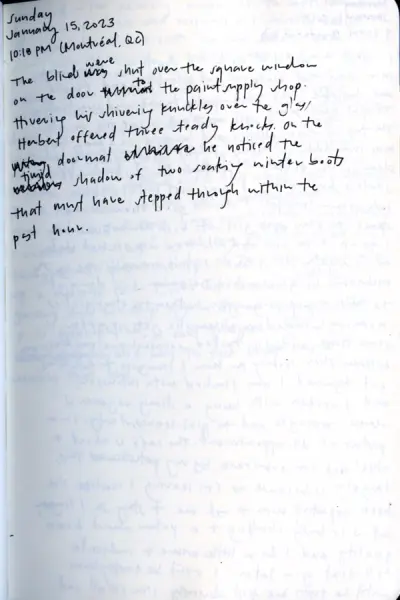 Sunday
January 15, 2023
10:18 PM (Montréal, QC)
The blinds were shut over the square window
on the door to the paint supply shop.
his shivering knuckles over the glass
Herbert offered three steady knocks. On the
doormat he noticed the
timid shadow of two soaking winter boots
that must have stepped through within the
past hour.